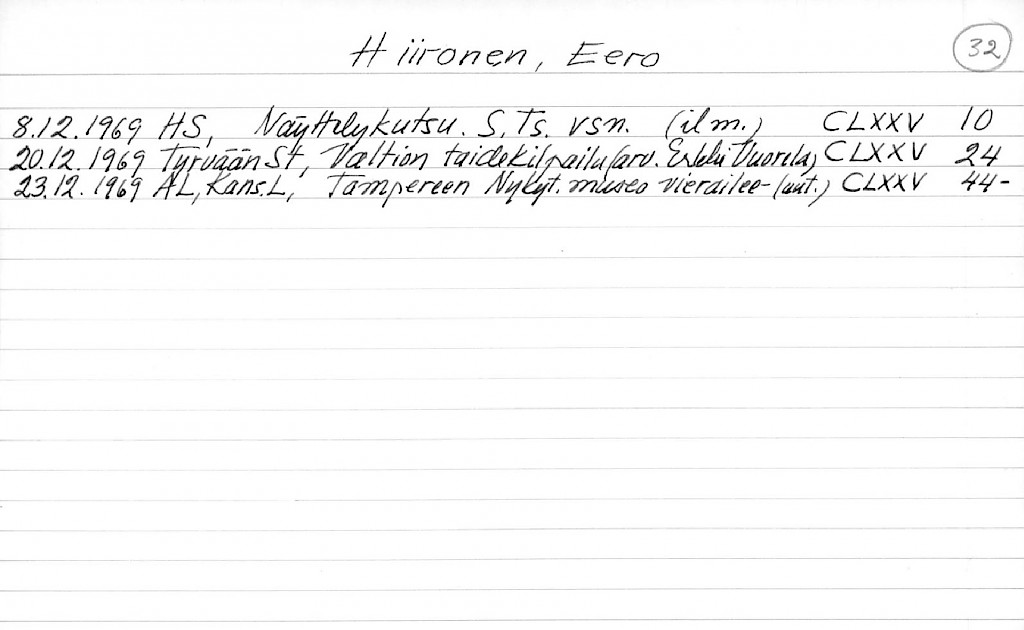 Hiironen, Eero 32
8.12.1969 HS, Näyttelykutsu. S.Ts. vsn. (ilm.) CLXXV 10
20.12.1969 Tyrvään St, Valtion taidekilpailu (arv. Erkki Vuorela) CLXXV 24
23.12.1969 AL, Kans.L, Tampereen Nykyt. museo vierailee- (uut.) CLXXV 44-